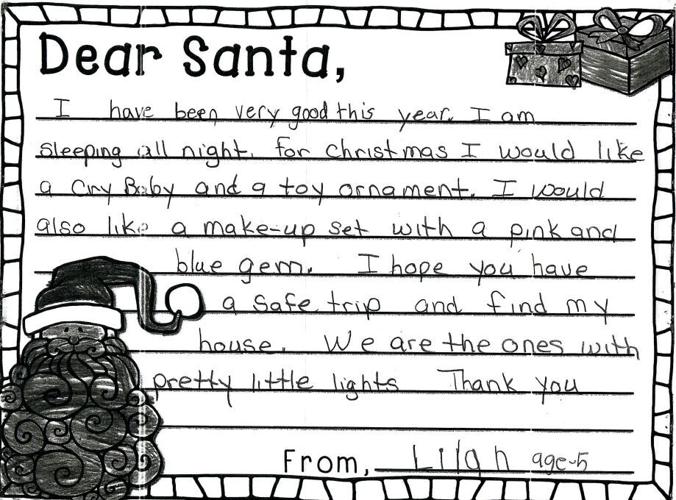 Dear Santa,
I have been very good this year. I am
sleeping all night. for Christmas I would like
a Cry Baby and a toy ornament. I would
also like a make-up set with a pink and
blue gem. I hope you have
a safe trip and find my
house. We are the ones with
pretty little lights Thank you
From, Lilah age-5